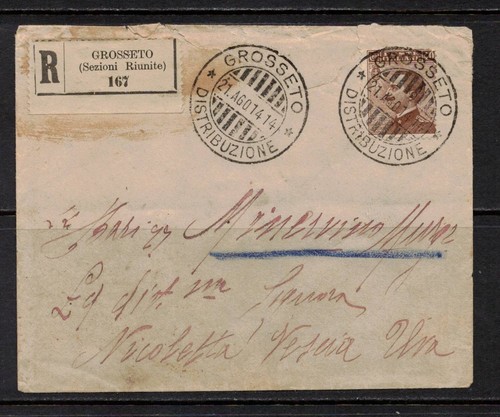 R
GROSSETO
(Sezioni Riunite)
167
GROSSETO
21.AGO14.14
DISTRIBUZIONE
GROSSETO
21.AGO.1
DISTRIBUZIONE
Bari Minervino Murge
Signora
Nicoletta Vescia Una